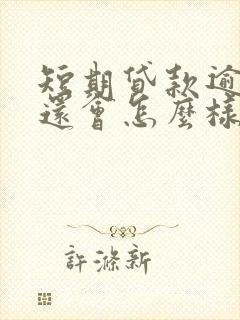 短期贷款逾
還會怎麼樣
許滌新